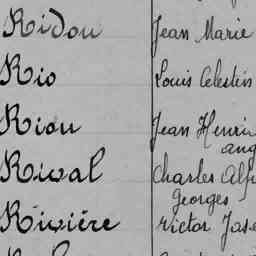 Ridou Jean Marie
Rio Louis Celestin
Riou Jean Henri
Rival Charles
Georges
Rivière Victor